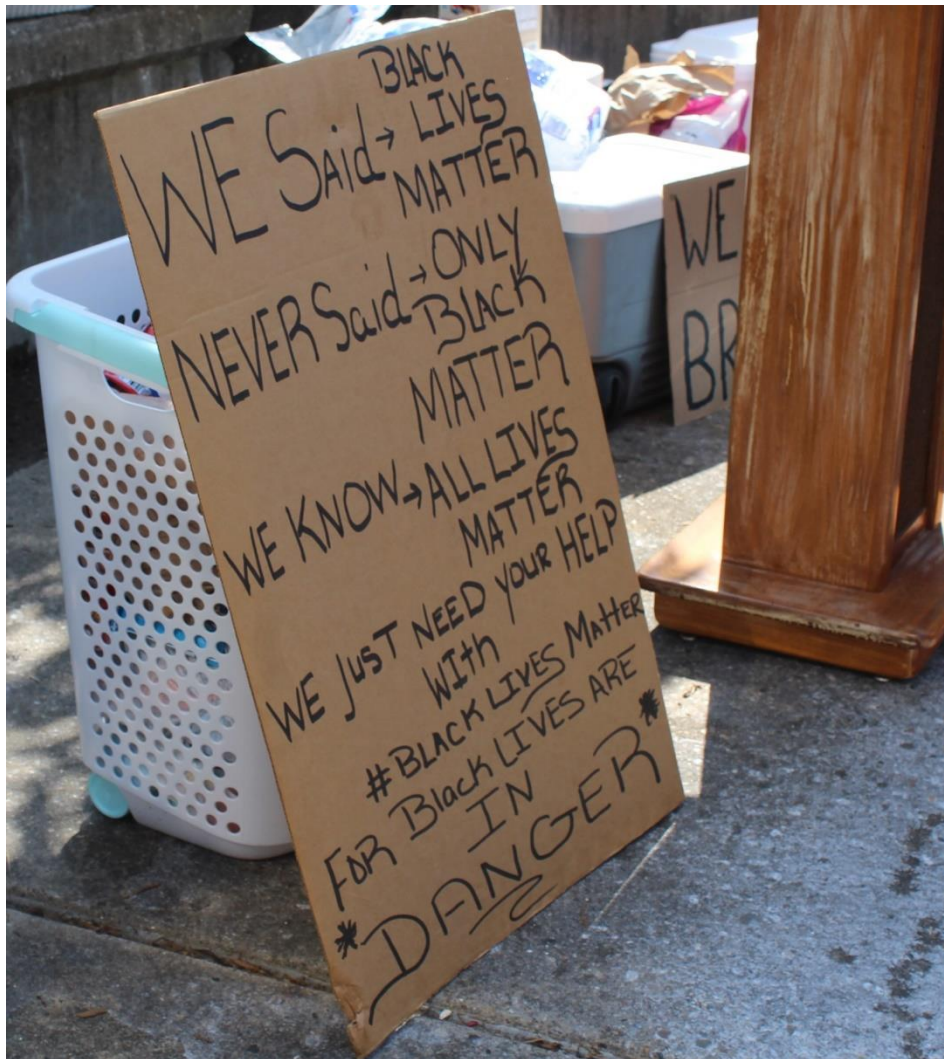 WE Said → BLACK
LIVES
MATTER
NEVER Said → ONLY
BLACK
MATTER
WE KNOW → ALL LIVES
MATTER
WE JUST NEED YOUR HELP
WITH
#BLACK LIVES MATTER
FOR Black LIVES ARE
IN
*DANGER*
WE
BR